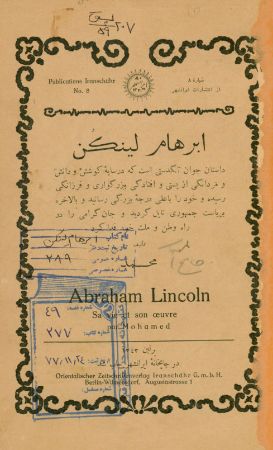 ۲۰۷
۵۹
Publications Iranschähr
No. 8
شماره ۸
از انتشارات ایرانشهر
ابرهام لینکن
داستان جوان تنگدستی است که در سایهٔ کوشش و دانش
و مردانگی از پستی و افتادگی به بزرگواری و فرزانگی
رسیده و خود را باعلی درجهٔ بزرگی رسانید و بالاخره
بریاست جمهوری نایل گردید و جان گرامی را در
راه وطن و ملت خود فدا کرد
نام کتاب ابرهام لینکن
۲۸۹
Abraham Lincoln
Sa vie et son œuvre
par Mohamed
۴۹
۲۷۷
برلین ۱۳۴۳
در چاپخانهٔ ایرانشهر
Orientalischer Zeitschriftenverlag Iranschähr G. m. b. H.
Berlin-Wilmersdorf, Augustastrasse 1